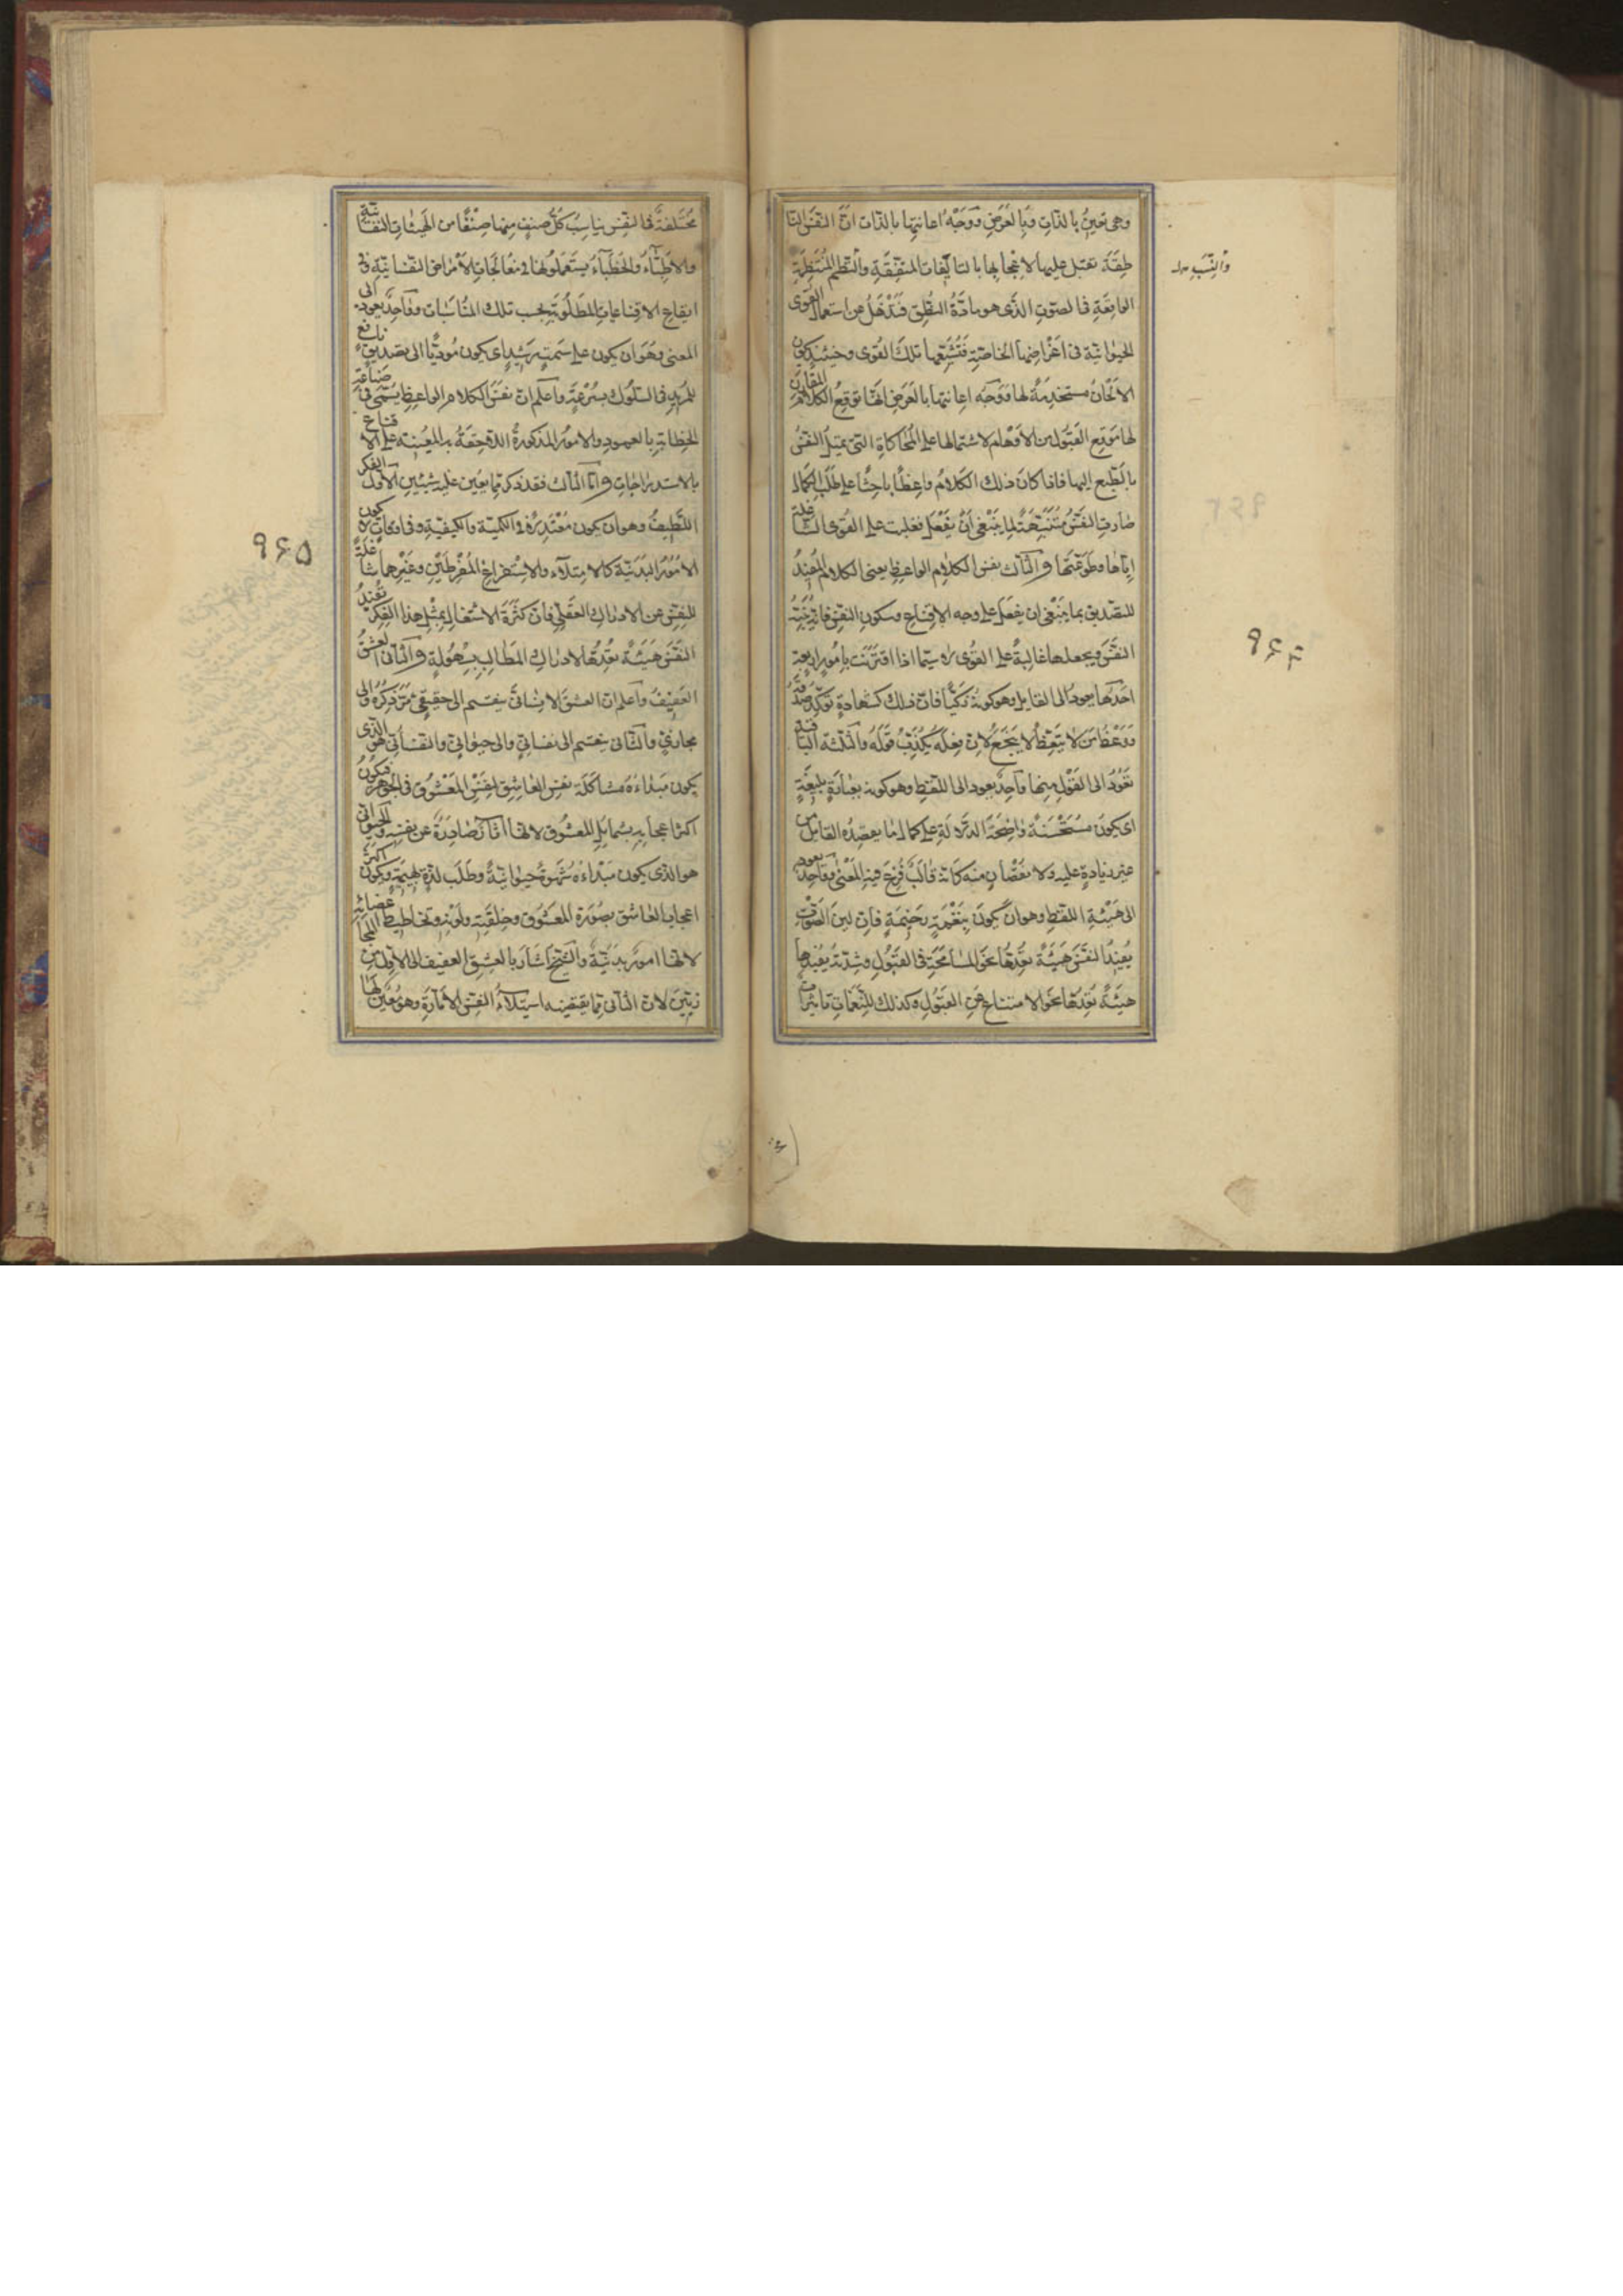 وهي تعين بالذات وبالعرض ووجه اعانتها بالذات ان النفس النا
طقة تقبل عليها لاعجابها بالتأليفات المتفقة والنظم المنتظمة
والنسب
الواقعة في الصوت الذي هو مادة النطق فتذهل عن استعمال القوى
الحيوانية في اغراضها الخاصة فتشيعها تلك القوى وحينئذ تكون
الالحان مستخدمة لها ووجه اعانتها بالعرض انها توقع الكلام المقارن
لها موقع القبول من الاوهام لاشتمالها على المحاكاة التي تميل النفس
بالطبع اليها فاذا كان ذلك الكلام واعظا باحثا على طلب الكمال
صارت النفس متنبهة لما ينبغي ان يفعل فغلبت على القوى الشاغلة
اياها وطوعتها والثالث نفس الكلام الواعظ يعني الكلام المفيد
للتصديق بما ينبغي ان يفعل على وجه الاقناع وسكون النفس فانه ينبه
النفس ويجعلها غالبة على القوى لا سيما اذا اقترنت بامور اربعة
احدها يعود الى القايل وهو كونه زكيا فان ذلك كشهادة تؤكد صدقه
ووعظ من لا يتعظ لا ينجع لان فعله يكذب قوله والثلثة الباقية
تعود الى القول منها واحد يعود الى اللفظ وهو كونه بعبارة بليغة
اي يكون مستحسنة واضحة الدلالة على كمال ما يقصده القايل من
غير زيادة عليه ولا نقصان منه كانه قالب فرغ فيه المعنى وواحد يعود
الى هيئة اللفظ وهو ان يكون بنغمة رخيمة فان لين الصوت
يفيد النفس هيئة تعدها نحو المسامحة في القبول وشدته يفيدها
هيئة تعدها نحو الامتناع عن القبول وكذلك للنغمات تاثيرات
۹۶۴
مختلفة في النفس يناسب كل صنف منها صنفا من الهيئات النفسانية
والاطباء والخطباء يستعملونها في معالجات الامراض النفسانية وفي
ايقاع الاقناعيات المطلوبة بحسب تلك المناسبات وواحد يعود الى
المعنى وهو ان يكون على سمت رشيد اي يكون مؤديا الى تصديق نافع
للمريد في السلوك بسرعة واعلم ان نفس الكلام الواعظ يسمى في صناعة
الخطابة بالعمود والامور المذكورة اللاحقة به المعينة على الاقناع
بالاستدراجات واما الثالث فقد ذكر مما يعين عليه شيئين الاول الفكر
اللطيف وهو ان يكون معتدلا في الكمية والكيفية وفي اوقات لا يكون
الامور البدنية كالامتلاء والاستفراغ المفرطين وغيرهما شاغلة
للنفس عن الادراك العقلي فان كثرة الاشتغال بمثل هذا الفكر تفيد
النفس هيئة تعدها لادراك المطالب بسهولة والثاني العشق
العفيف واعلم ان العشق الانساني ينقسم الى حقيقي مر ذكره والى
مجازي والثاني ينقسم الى نفساني والى حيواني والنفساني هو الذي
يكون مبداءه مشاكلة نفس العاشق لنفس المعشوق في الجوهر فيكون
اكثر اعجابه بشمايل المعشوق لانها اثار صادرة عن نفسه والحيواني
هو الذي يكون مبداءه شهوة حيوانية وطلب لذة بهيمية ويكون اكثر
اعجاب العاشق بصورة المعشوق وخلقته ولونه وتخاطيط اعضائه
لانها امور بدنية والشيخ اشار بالعشق العفيف الى الاول من المجا
زيين لان الثاني مما يقتضيه استيلاء النفس الامارة وهو معين لها
۹۶۵